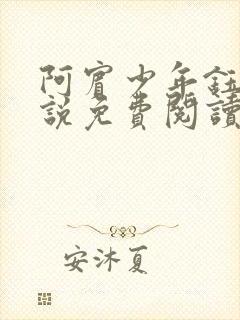 阿賓少年鈺
說免費閱讀
安沐夏